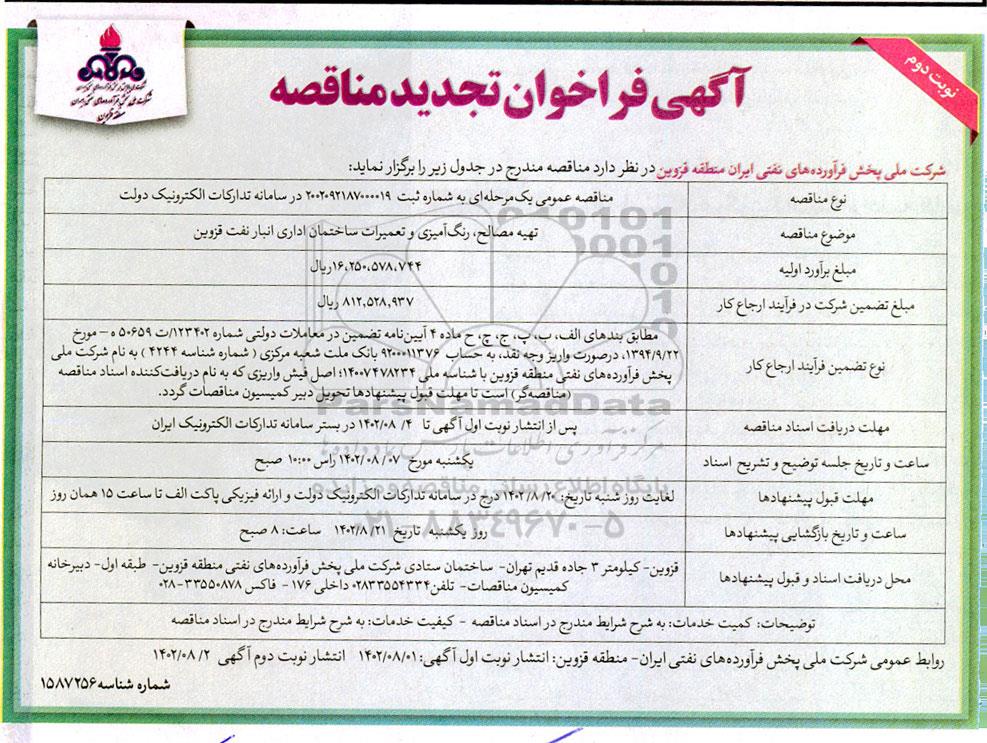 نوبت دوم
شرکت ملی پخش فرآورده‌های نفتی ایران
منطقه قزوین
آگهی فراخوان تجدید مناقصه
شرکت ملی پخش فرآورده‌های نفتی ایران منطقه قزوین در نظر دارد مناقصه مندرج در جدول زیر را برگزار نماید:
نوع مناقصه
مناقصه عمومی یک‌مرحله‌ای به شماره ثبت ۲۰۰۲۰۹۲۱۸۷۰۰۰۰۱۹ در سامانه تدارکات الکترونیک دولت
موضوع مناقصه
تهیه مصالح، رنگ‌آمیزی و تعمیرات ساختمان اداری انبار نفت قزوین
مبلغ برآورد اولیه
۱۶,۲۵۰,۵۷۸,۷۴۴ریال
مبلغ تضمین شرکت در فرآیند ارجاع کار
۸۱۲,۵۲۸,۹۳۷ ریال
نوع تضمین فرآیند ارجاع کار
مطابق بندهای الف، ب، پ، ج، چ، ح ماده ۴ آیین‌نامه تضمین در معاملات دولتی شماره ۱۲۳۴۰۲/ت ۵۰۶۵۹ ه – مورخ
۱۳۹۴/۹/۲۲، درصورت واریز وجه نقد، به حساب ۹۲۰۰۰۱۱۳۷۶ بانک ملت شعبه مرکزی ( شماره شناسه ۴۲۴۴ ) به نام شرکت ملی
پخش فرآورده‌های نفتی منطقه قزوین با شناسه ملی ۱۴۰۰۷۴۷۸۲۳۴؛ اصل فیش واریزی که به نام دریافت‌کننده اسناد مناقصه
(مناقصه‌گر) است تا مهلت قبول پیشنهادها تحویل دبیر کمیسیون مناقصات گردد.
مهلت دریافت اسناد مناقصه
پس از انتشار نوبت اول آگهی تا ۱۴۰۲/۰۸/۰۴ در بستر سامانه تدارکات الکترونیک ایران
ساعت و تاریخ جلسه توضیح و تشریح اسناد
یکشنبه مورخ ۱۴۰۲/۰۸/۰۷ راس ۱۰:۰۰ صبح
مهلت قبول پیشنهادها
لغایت روز شنبه تاریخ: ۱۴۰۲/۸/۲۰ درج در سامانه تدارکات الکترونیک دولت و ارائه فیزیکی پاکت الف تا ساعت ۱۵ همان روز
ساعت و تاریخ بازگشایی پیشنهادها
روز یکشنبه تاریخ ۱۴۰۲/۸/۲۱ ساعت: ۸ صبح
محل دریافت اسناد و قبول پیشنهادها
قزوین- کیلومتر ۳ جاده قدیم تهران- ساختمان ستادی شرکت ملی پخش فرآورده‌های نفتی منطقه قزوین- طبقه اول- دبیرخانه
کمیسیون مناقصات- تلفن۰۲۸۳۳۵۵۴۳۳۴ داخلی ۱۷۶ - فاکس ۳۳۵۵۰۸۷۸-۰۲۸
توضیحات: کمیت خدمات: به شرح شرایط مندرج در اسناد مناقصه - کیفیت خدمات: به شرح شرایط مندرج در اسناد مناقصه
روابط عمومی شرکت ملی پخش فرآورده‌های نفتی ایران- منطقه قزوین: انتشار نوبت اول آگهی: ۱۴۰۲/۰۸/۰۱ انتشار نوبت دوم آگهی ۱۴۰۲/۰۸/۲
شماره شناسه۱۵۸۷۲۵۶
ParsNamadData
پایگاه اطلاع رسانی مناقصه و مزایده
۰۲۱-۸۸۳۴۹۶۷۰-۵